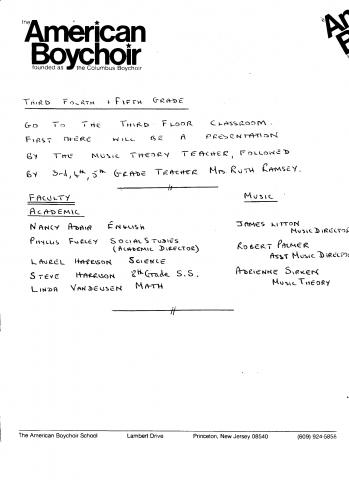 the American
Boychoir
founded as the Columbus Boychoir
THIRD FOURTH + FIFTH GRADE
GO TO THE THIRD FLOOR CLASSROOM.
FIRST THERE WILL BE A PRESENTATION
BY THE MUSIC THEORY TEACHER, FOLLOWED
BY 3rd, 4th, 5th GRADE TEACHER MRS RUTH RAMSEY.
FACULTY
ACADEMIC
NANCY ADAIR ENGLISH
PHYLLIS FURLEY SOCIAL STUDIES
(ACADEMIC DIRECTOR)
LAUREL HARRISON SCIENCE
STEVE HARRISON 8th Grade S.S.
LINDA VANDEUSEN MATH
MUSIC
JAMES LITTON
MUSIC DIRECTOR
ROBERT PALMER
ASST MUSIC DIRECTOR
ADRIENNE SIRKEN
MUSIC THEORY
The American Boychoir School Lambert Drive Princeton, New Jersey 08540 (609) 924-5858